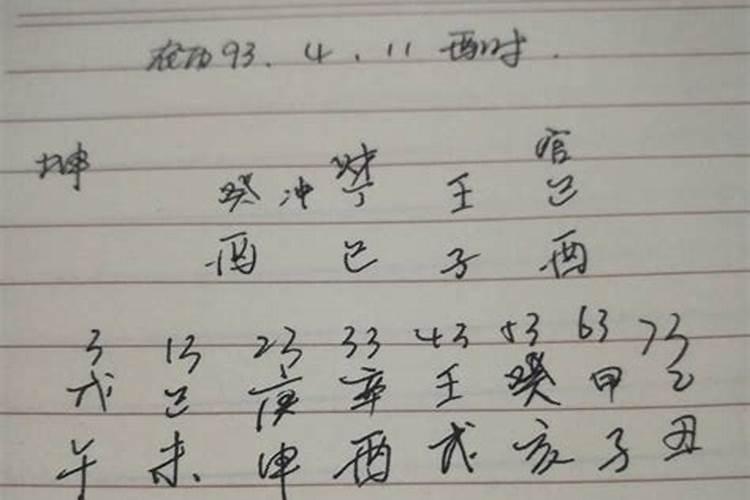 农历93.4.11 酉时.
财 官
坤 癸 冲 丁 壬 己
酉 巳 子 酉
3 13 23 33 43 53 63 73
戊 己 庚 辛 壬 癸 甲 乙
午 未 申 酉 戌 亥 子 丑